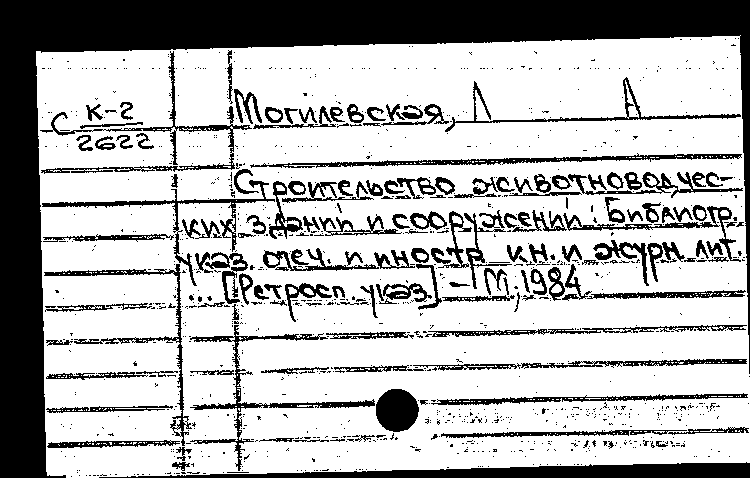 С К-2
2622
Могилевская, Л А
Строительство животноводчес-
ких зданий и сооружений: Библиогр.
указ. отеч. и иностр. кн. и журн. лит.
... [Ретросп. указ.] - М., 1984